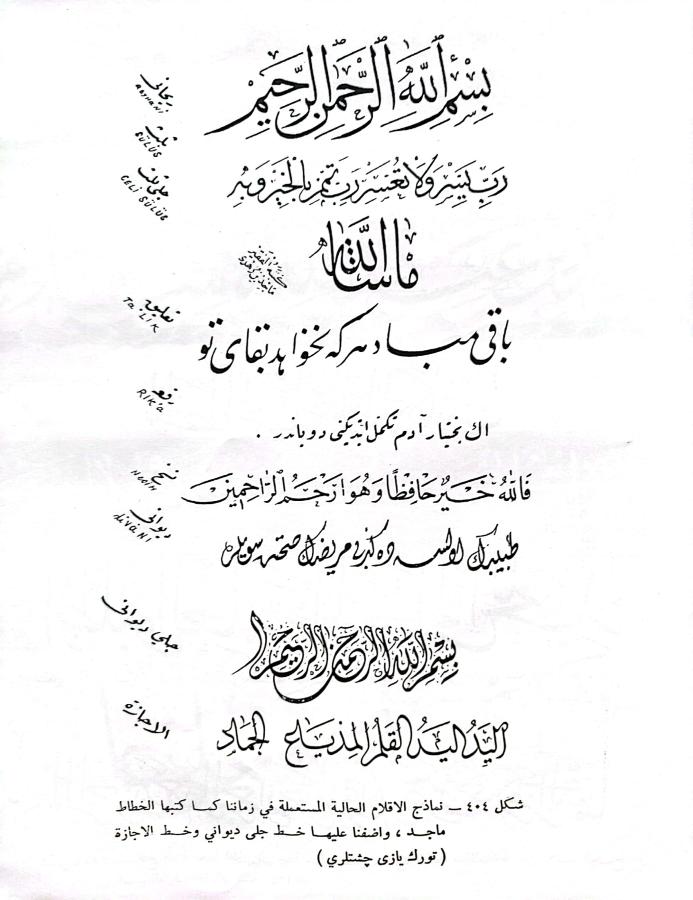 ريحانى
REYHANİ
بِسْمِ ٱللّٰهِ ٱلرَّحْمٰنِ ٱلرَّحِيْمِ
ثلث
SÜLÜS
رَبِّ يَسِّرْ وَلَا تُعَسِّرْ رَبِّ تَمِّمْ بِالْخَيْرِ وَبِهِ
جلى ثلث
CELİ SÜLÜS
مَا شَاءَ اللّٰه
تعليق
TA'LİK
باقى مباد هر كه نخواهد بقاى تو
رقعه
RIK'A
اك بختيار آدم تكمل ايتديكنى دوياندر .
نسخ
NESİH
فَاللّٰهُ خَيْرٌ حَافِظًا وَهُوَ اَرْحَمُ الرَّاحِمِينَ
ديوانى
DİVANİ
جلي ديوانى
بسم الله الرحمن الرحيم
الاجازة
شكل ٤٠٤ – نماذج الاقلام الحالية المستعملة في زماننا كما كتبها الخطاط
ماجد ، واضفنا عليها خط جلى ديواني وخط الاجازة
( تورك يازى چشتلري )